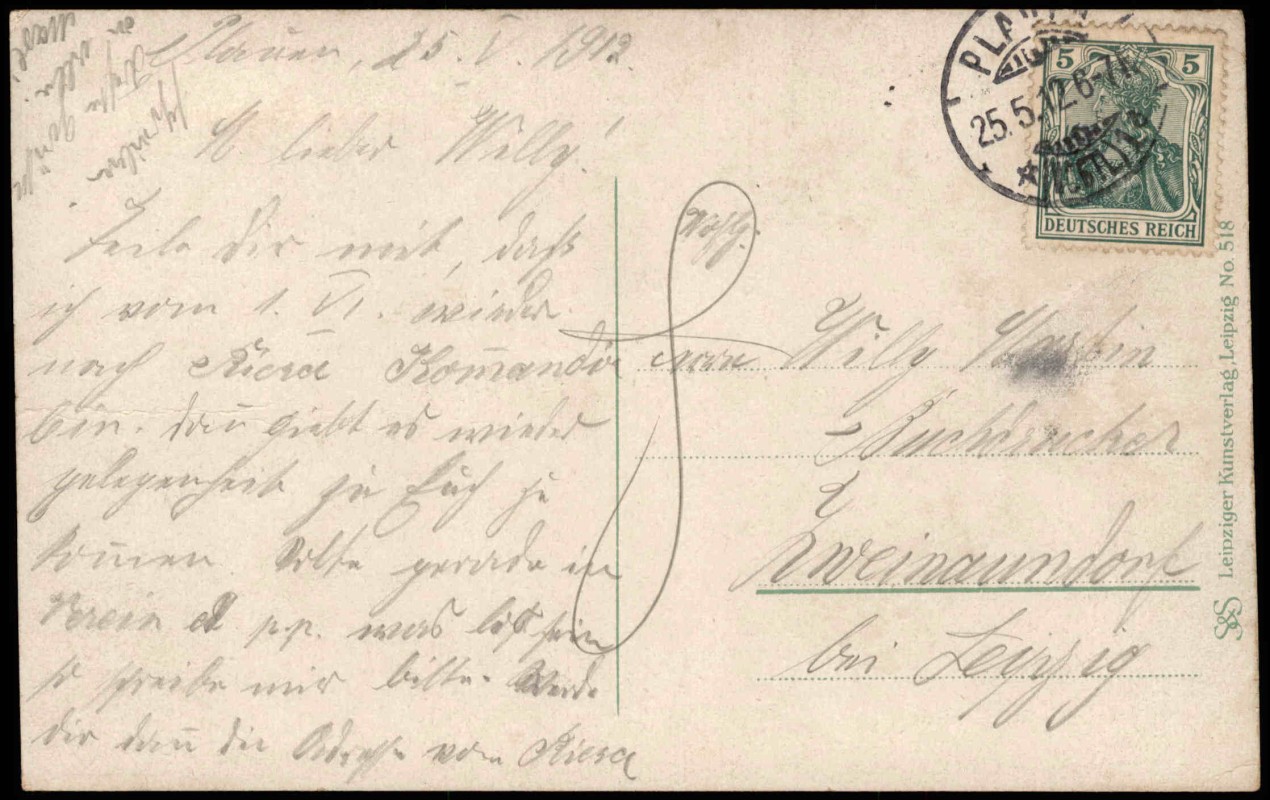 Plauen, 25. V. 1912.
M. lieber Willy!
Teile dir mit, dass
ich vom 1. VI. wieder
nach Riesa Komandir
bin. dan giebt es wieder
gelegenheit zu Euch zu
komen. Solte gerade im
Verein pp. was los sein
so schreibe mir bitte. Werde
dir dan die Adresse von Riesa
schreiben
PLAUEN
25.5.12.6-7N.
*(VOGTL.)
5 5
DEUTSCHES REICH
Wohlg.
Willy
Buchdrucker
Zweinaundorf
bei Leipzig
Leipziger Kunstverlag, Leipzig No. 518